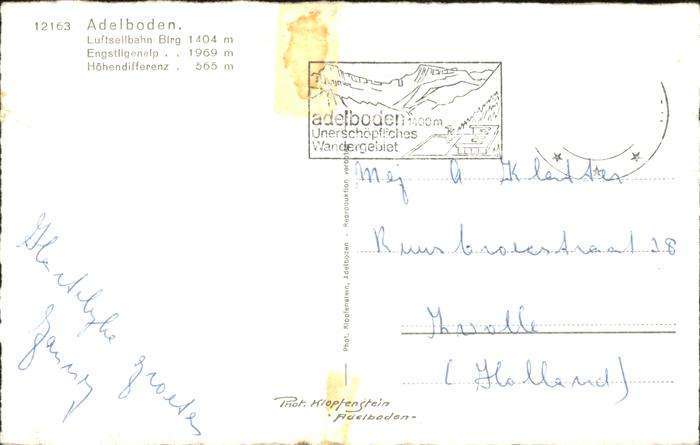 12163 Adelboden.
Luftseilbahn Birg 1404 m
Engstligenalp . . 1969 m
Höhendifferenz . 565 m
adelboden 1400m
Unerschöpfliches
Wandergebiet
Mej A Kletter
Ruusbroecstraat 28
Zwolle
(Holland)
Hartelijke
groeten
Phot. Klopfenstein, Adelboden - Reproduktion verboten
Phot. Klopfenstein
- Adelboden -